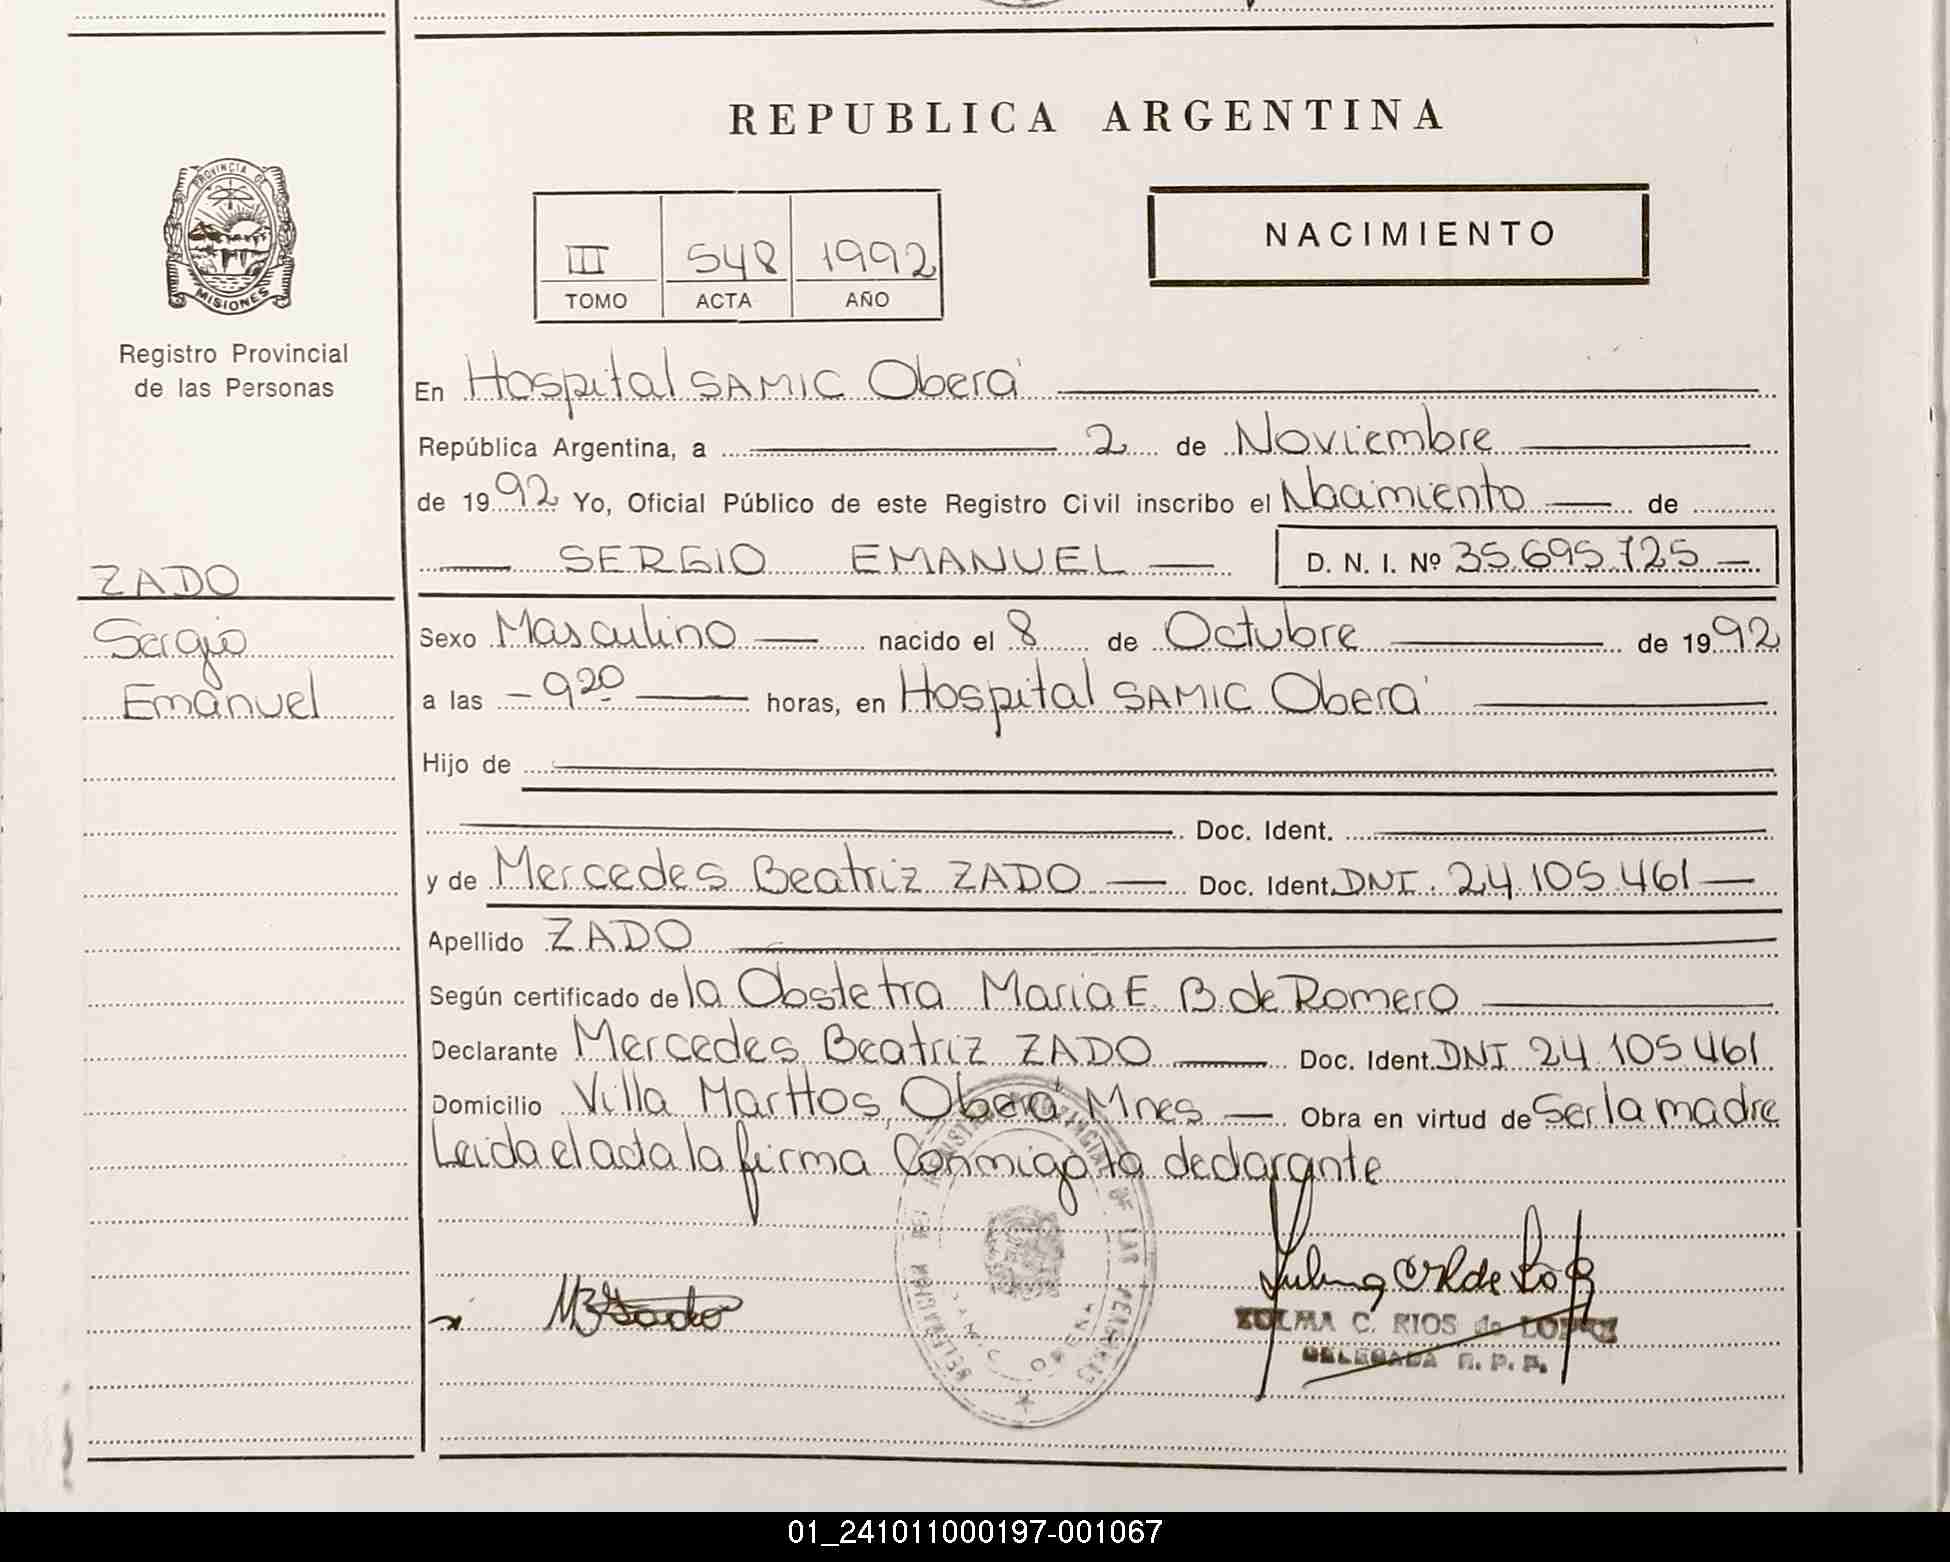 REPUBLICA ARGENTINA
PROVINCIA DE
MISIONES
Registro Provincial
de las Personas
III 548 1992
TOMO ACTA AÑO
NACIMIENTO
En Hospital SAMIC Oberá
República Argentina, a 2 de Noviembre
de 1992 Yo, Oficial Público de este Registro Civil inscribo el Nacimiento de
SERGIO EMANUEL D. N. I. Nº 35.695.725
ZADO
Sergio
Emanuel
Sexo Masculino nacido el 8 de Octubre de 1992
a las 9 20 horas, en Hospital SAMIC Oberá
Hijo de
Doc. Ident.
y de Mercedes Beatriz ZADO Doc. Ident. DNI. 24.105.461
Apellido ZADO
Según certificado de la Obstetra Maria E. B. de Romero
Declarante Mercedes Beatriz ZADO Doc. Ident. DNI 24.105.461
Domicilio Villa Marttos, Oberá Mnes Obra en virtud de Ser la madre
Leida el acta la firma Conmigo la declarante
MB Zado
ZULMA C. RIOS de LOPEZ
DELEGADA R. P. P.
01_241011000197-001067